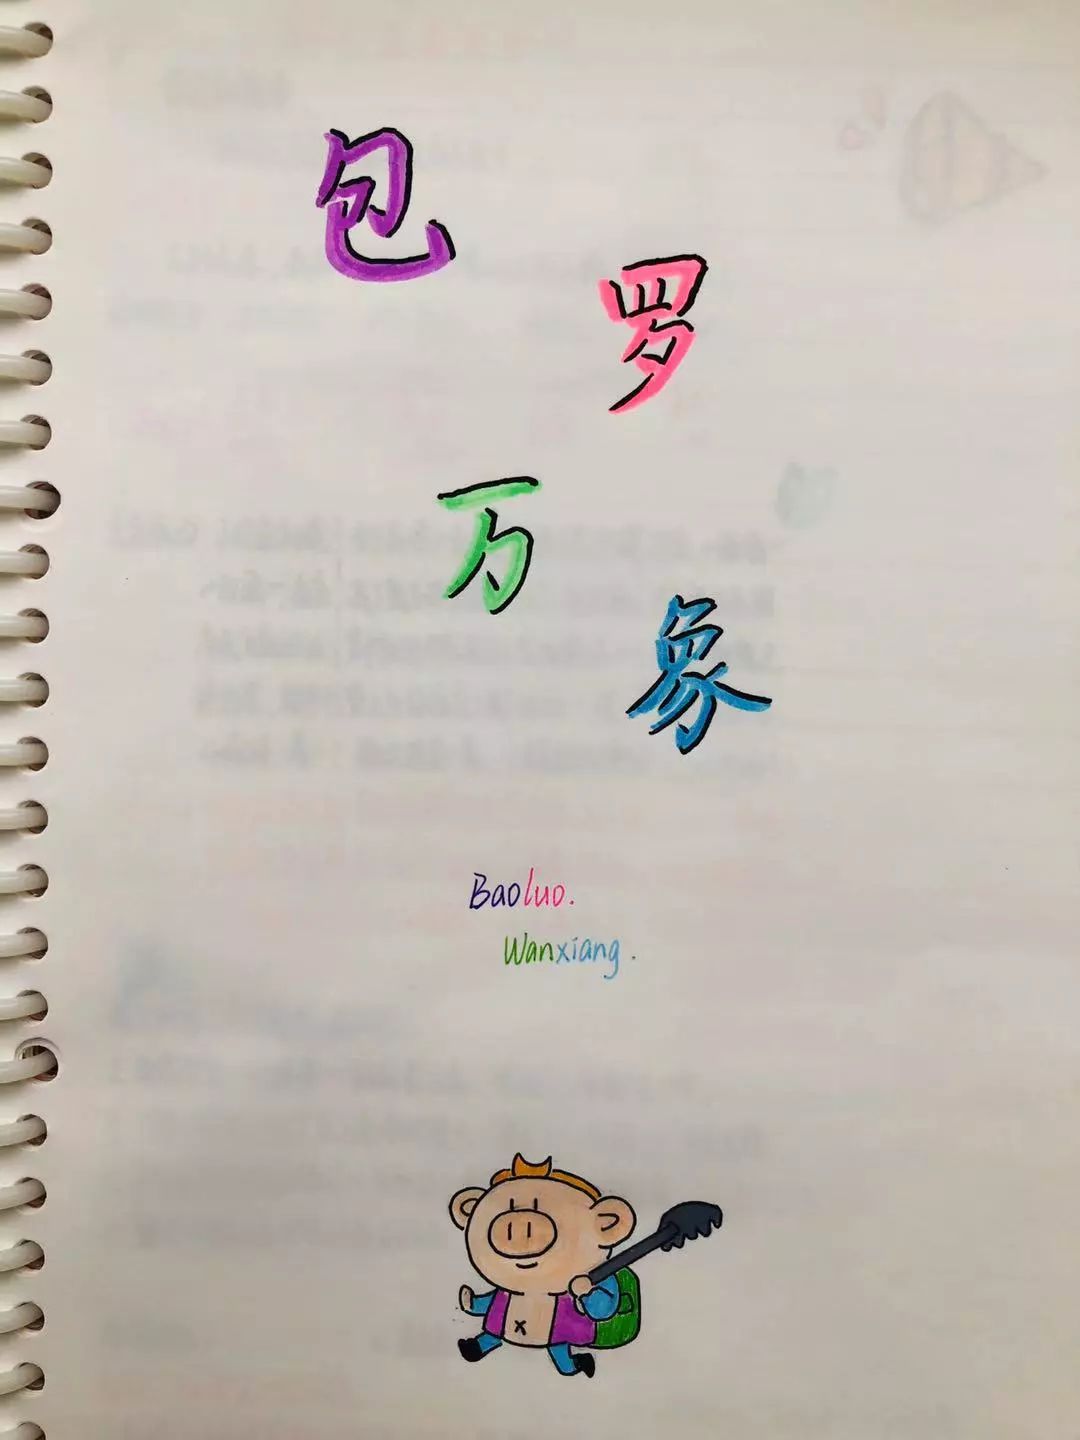 包
罗
万
象
Baoluo.
Wanxiang.